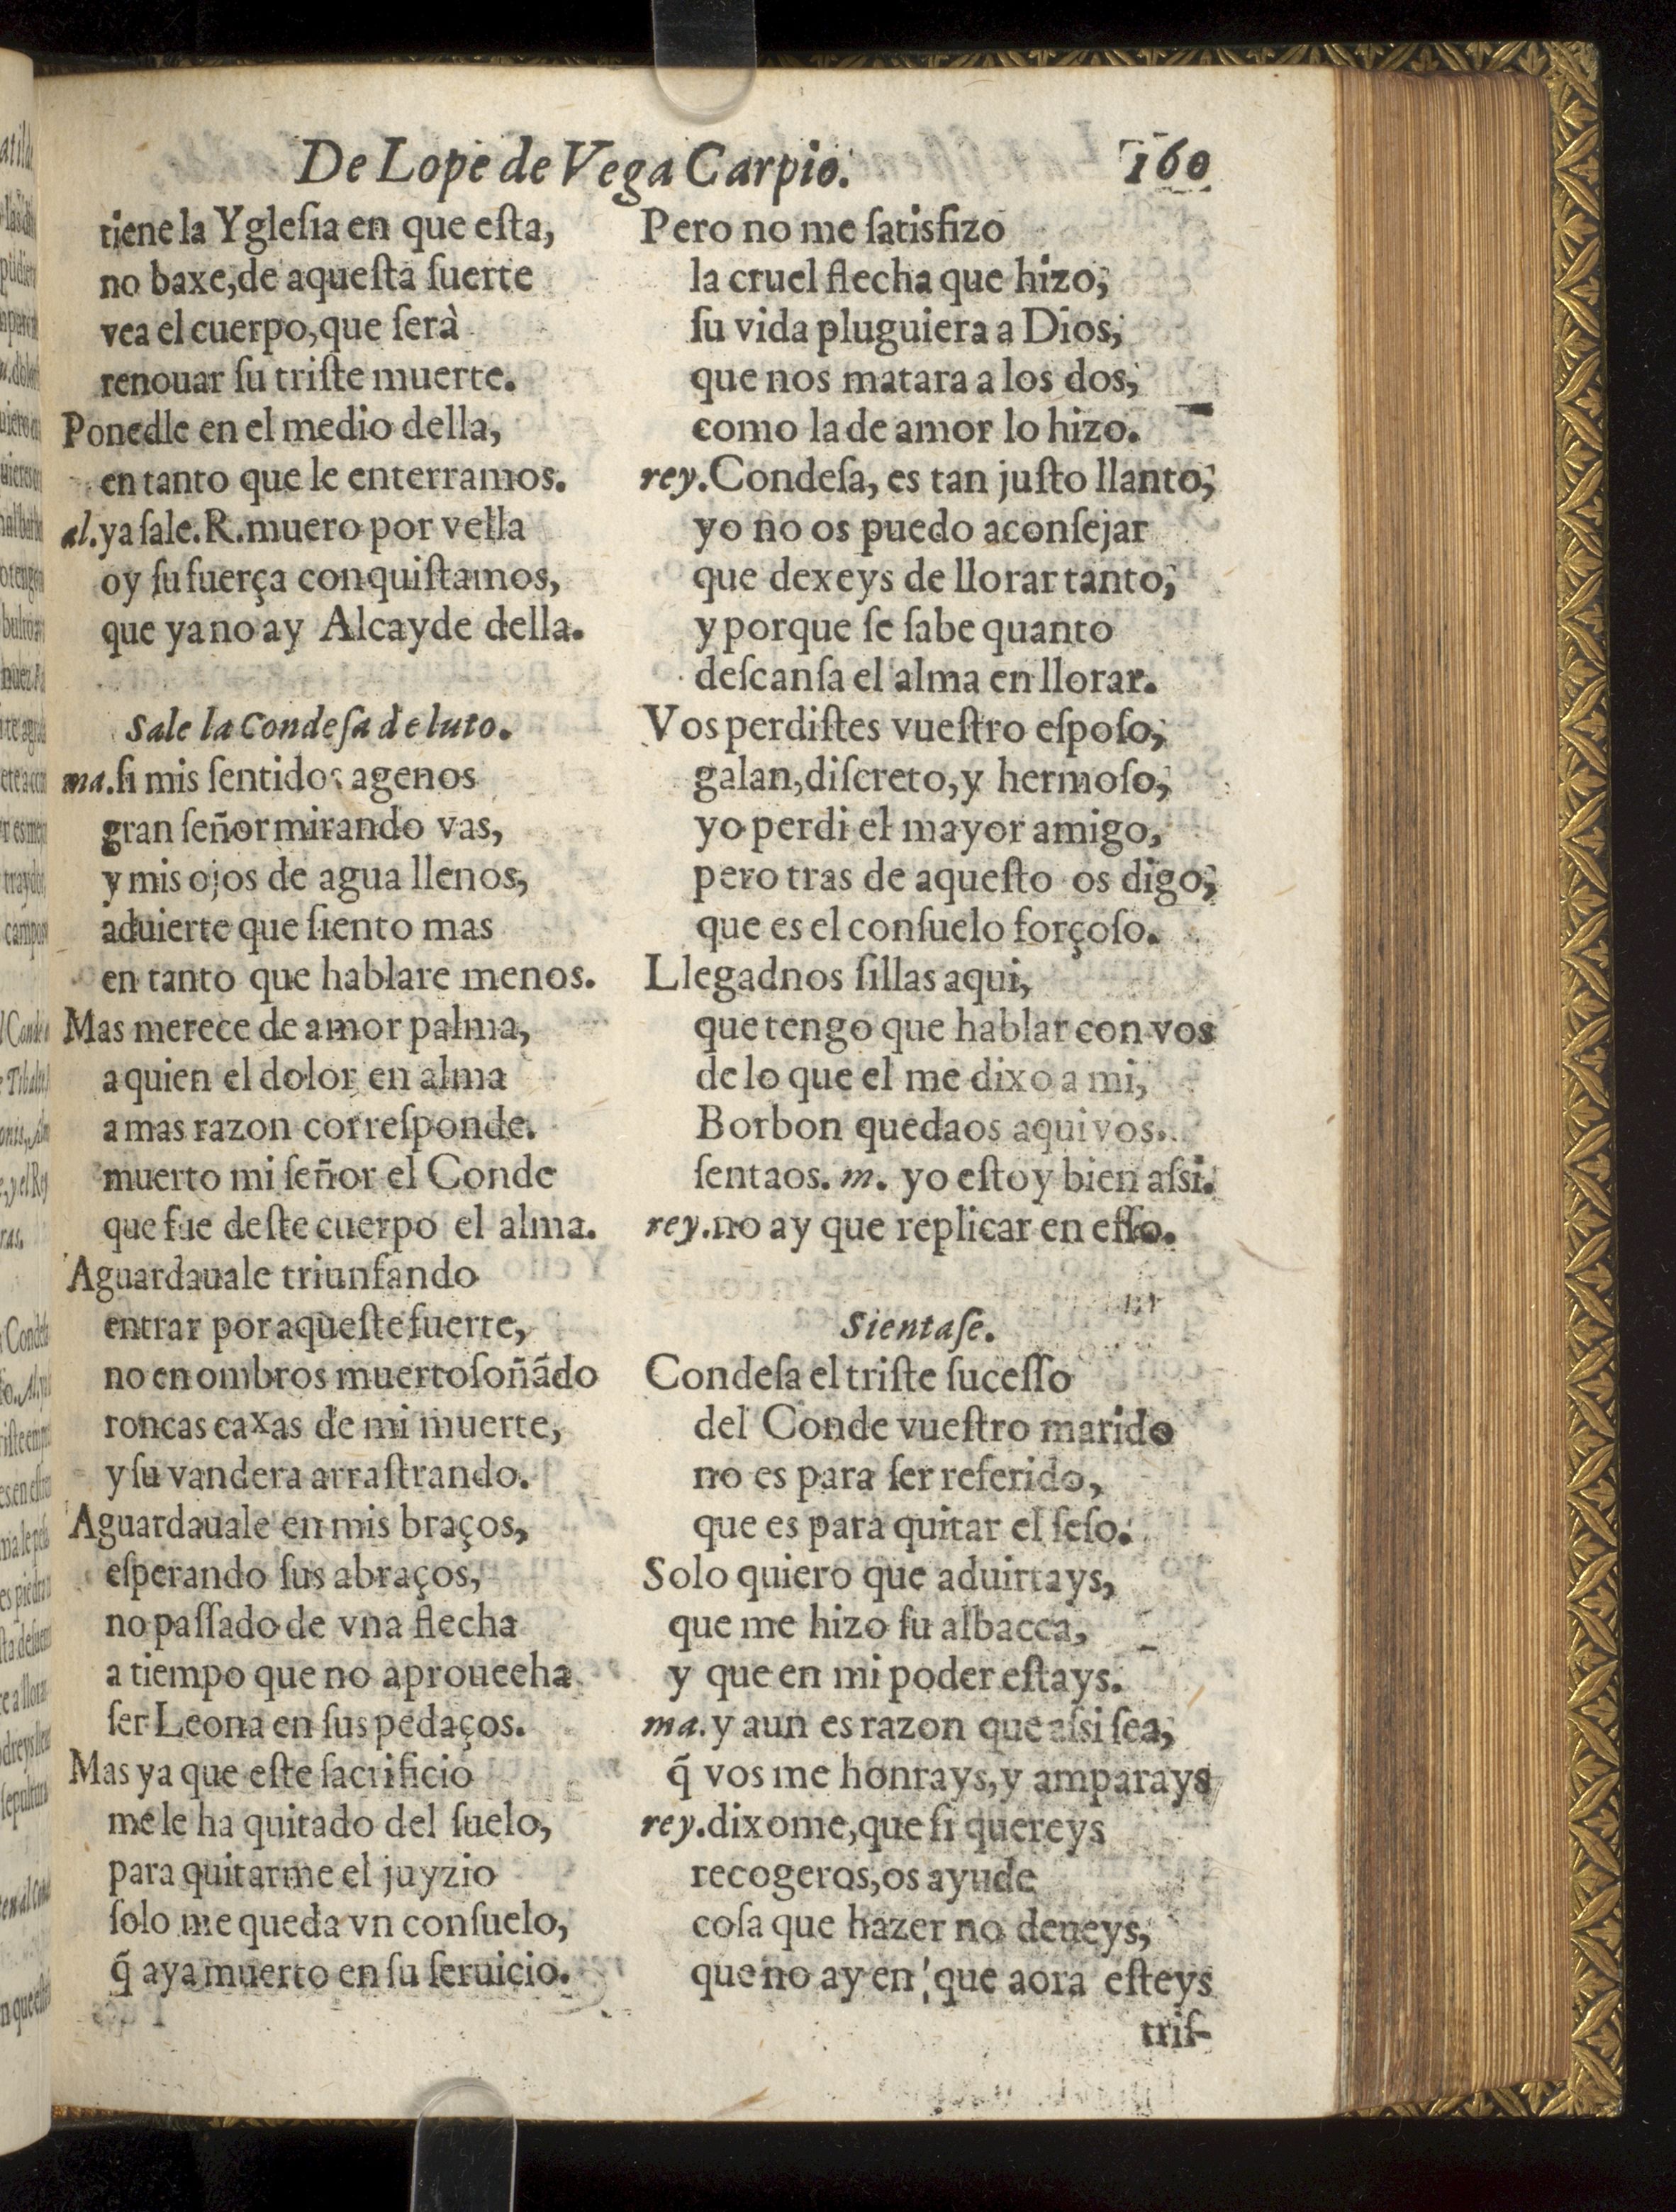 De Lope de Vega Carpio. 160
tiene la Yglesia en que esta,
no baxe, de aquesta suerte
vea el cuerpo, que serà
renouar su triste muerte.
Ponedle en el medio della,
en tanto que le enterramos.
al. ya sale. R. muero por vella
oy su fuerça conquistamos,
que ya no ay Alcayde della.
Sale la Condesa de luto.
ma. si mis sentidos agenos
gran señor mirando vas,
y mis ojos de agua llenos,
aduierte que siento mas
en tanto que hablare menos.
Mas merece de amor palma,
a quien el dolor en alma
a mas razon corresponde.
muerto mi señor el Conde
que fue deste cuerpo el alma.
Aguardauale triunfando
entrar por aqueste fuerte,
no en ombros muerto soñãdo
roncas caxas de mi muerte,
y su vandera arrastrando.
Aguardauale en mis braços,
esperando sus abraços,
no passado de vna flecha
a tiempo que no aproueeha
ser Leona en sus pedaços.
Mas ya que este sacrificio
me le ha quitado del suelo,
para quitarme el juyzio
solo me queda vn consuelo,
q̃ aya muerto en su seruicio.
Pero no me satisfizo
la cruel flecha que hizo,
su vida pluguiera a Dios,
que nos matara a los dos,
como la de amor lo hizo.
rey. Condesa, es tan justo llanto,
yo no os puedo aconsejar
que dexeys de llorar tanto,
y porque se sabe quanto
descansa el alma en llorar.
Vos perdistes vuestro esposo,
galan, discreto, y hermoso,
yo perdi el mayor amigo,
pero tras de aquesto os digo,
que es el consuelo forçoso.
Llegadnos sillas aqui,
que tengo que hablar con vos
de lo que el me dixo a mi,
Borbon quedaos aqui vos.
sentaos. m. yo estoy bien assi.
rey. no ay que replicar en esso.
Sientase.
Condesa el triste sucesso
del Conde vuestro marido
no es para ser referido,
que es para quitar el seso.
Solo quiero que aduirtays,
que me hizo su albacca,
y que en mi poder estays.
ma. y aun es razon que assi sea,
q̃ vos me honrays, y amparays
rey. dixome, que si quereys
recogeros, os ayude
cosa que hazer no deueys,
que no ay en que aora esteys
tris-